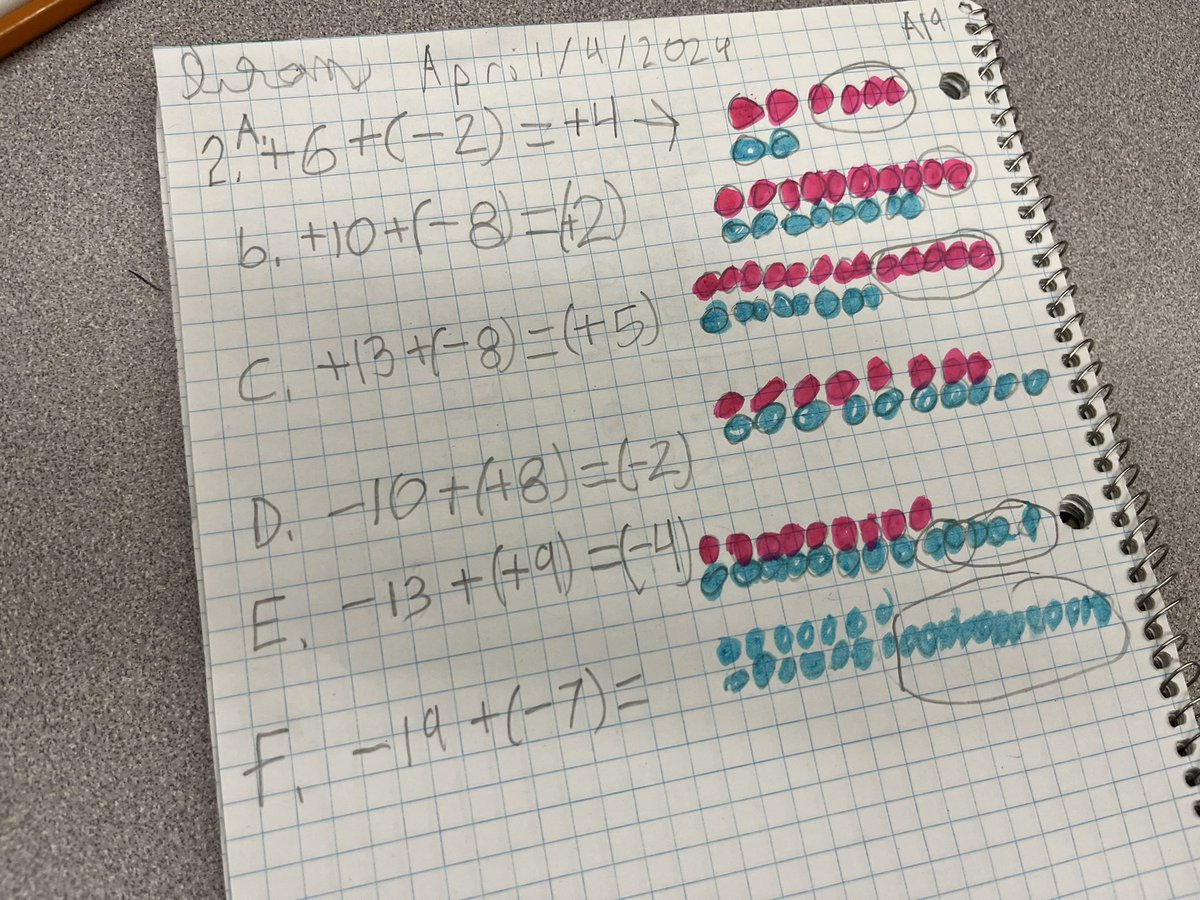 April/4/2024
A19
2. A. +6 +(-2) = +4 →
b. +10+(-8)=(+2)
C. +13+(-8)=(+5)
D. -10+(+8)=(-2)
E. -13 +(+9)=(-4)
F. -19 +(-7)=